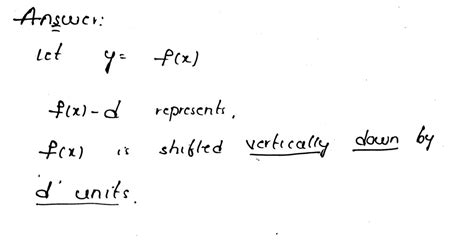 Answer:
Let y= f(x)
f(x)-d represents,
f(x) is shifted vertically down by
'd' units.